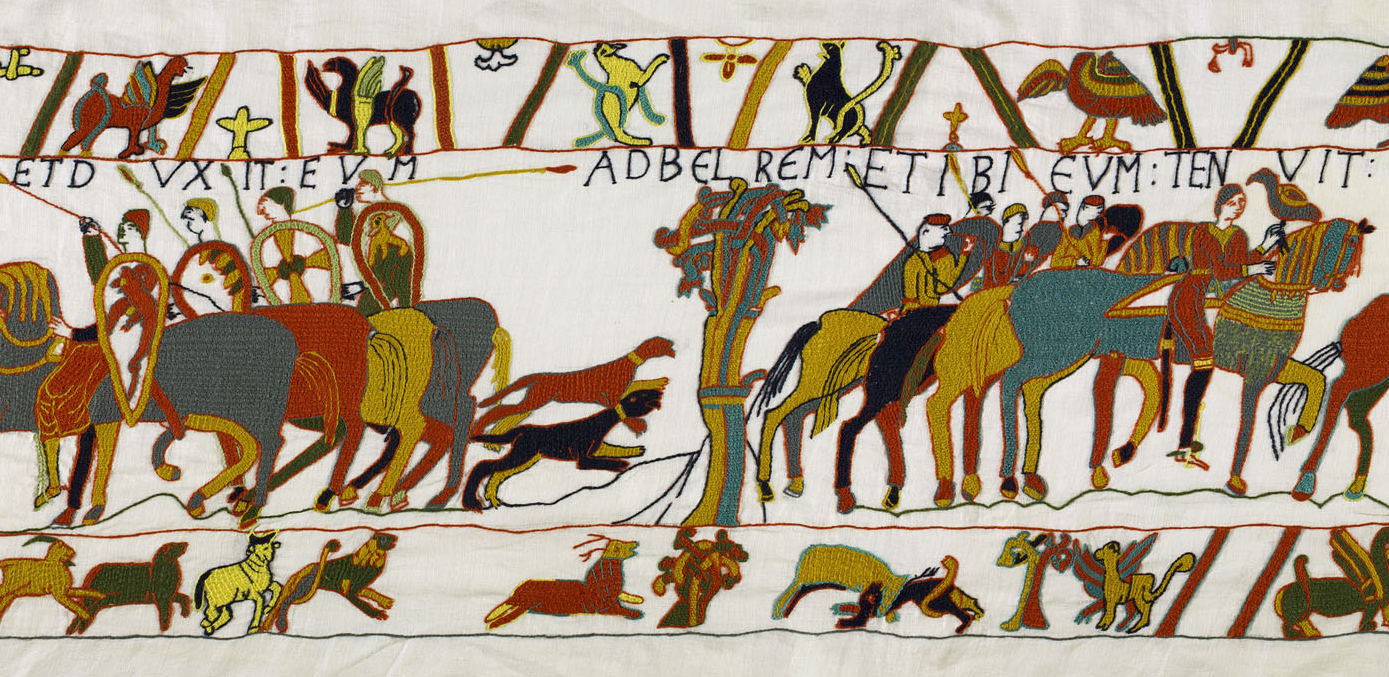 ETD VXIT: EVM AD BELREM: ET IBI EVM: TENVIT: